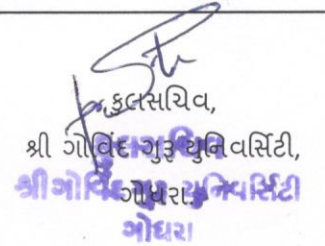 કુલસચિવ,
શ્રી ગોવિંદ ગુરુ યુનિવર્સિટી,
ગોધરા.
કુલસચિવ
શ્રી ગોવિંદ ગુરુ યુનિવર્સિટી
ગોધરા